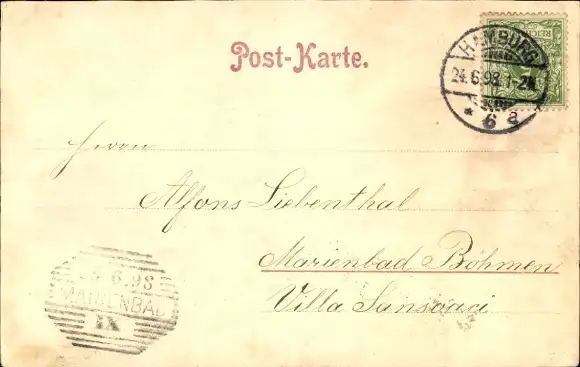 Post-Karte.
REICH
HAMBURG
24.6.98.1-2N
* 6 a
Herrn
Alfons Liebenthal
Marienbad Böhmen
Villa Sanssouci
6.98
MARIENBAD
IX